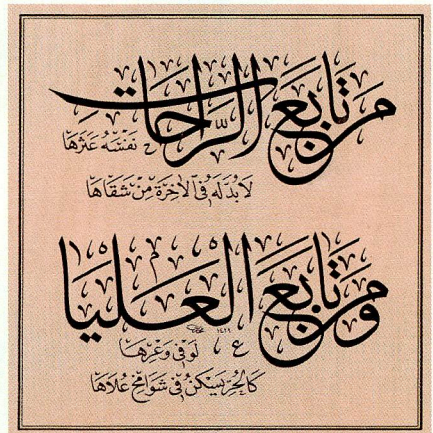 من تابع الراحات
نفسه عنزها
لابد له في الآخرة من شقاها
ومن تابع العليا
لو في وعرها
كالحر يسكن في شوامخ علاها
١٤٢٦